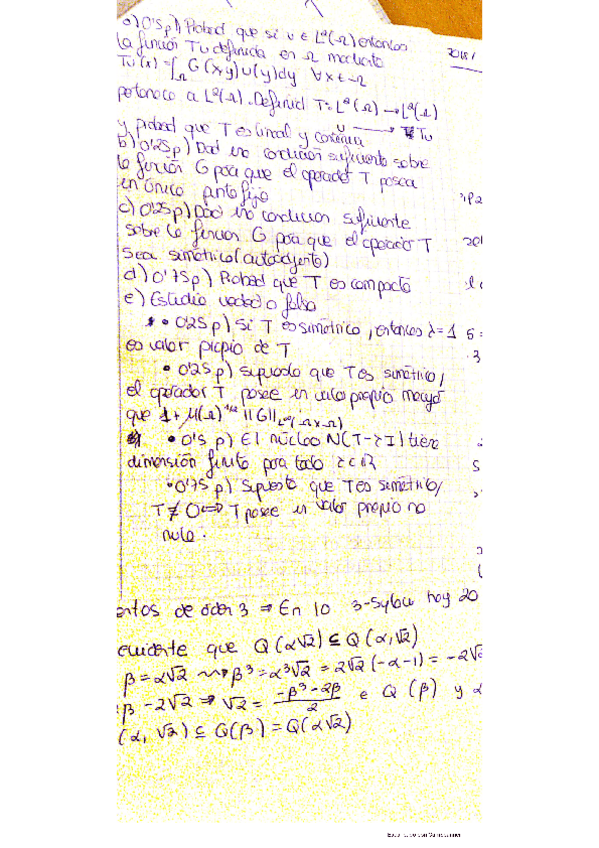 a) 0'5 p) Probad que si u ∈ L²(Ω) entonces
la función Tu definida en Ω mediante
Tu(x) = ∫_Ω G(x,y)u(y)dy ∀x∈Ω
pertenece a L²(Ω). Definid T: L²(Ω) → L²(Ω)
u → Tu
y probad que T es lineal y continua
b) 0'25 p) Dad una condición suficiente sobre
la función G para que el operador T posea
un único punto fijo
c) 0'25 p) Dad una condición suficiente
sobre la función G para que el operador T
sea simétrico (autoadjunto)
d) 0'75 p) Probad que T es compacto
e) Estudia verdad o falso
• 0'25 p) Si T es simétrico, entonces λ=1
es valor propio de T
• 0'25 p) Supuesto que T es simétrico,
el operador T posee un valor propio mayor
que 1 + μ(Ω)^{1/2} ||G||
• 0'5 p) El núcleo N(T-λI) tiene
dimensión finita para todo λ∈ℝ
• 0'75 p) Supuesto que T es simétrico,
T ≠ 0 ⟺ T posee un valor propio no
nulo.
de orden 3 ⇒ En 10 3-Sylow hay 20
evidente que Q(α√2) ⊆ Q(α,√2)
β = α√2 ⇝ β³ = α³√2 = 2√2(-α-1) = -2√2
β - 2√2 ⇒ √2 = (-β³-2β)/2 ∈ Q(β) y α
(α, √2) ⊆ Q(β) = Q(α√2)